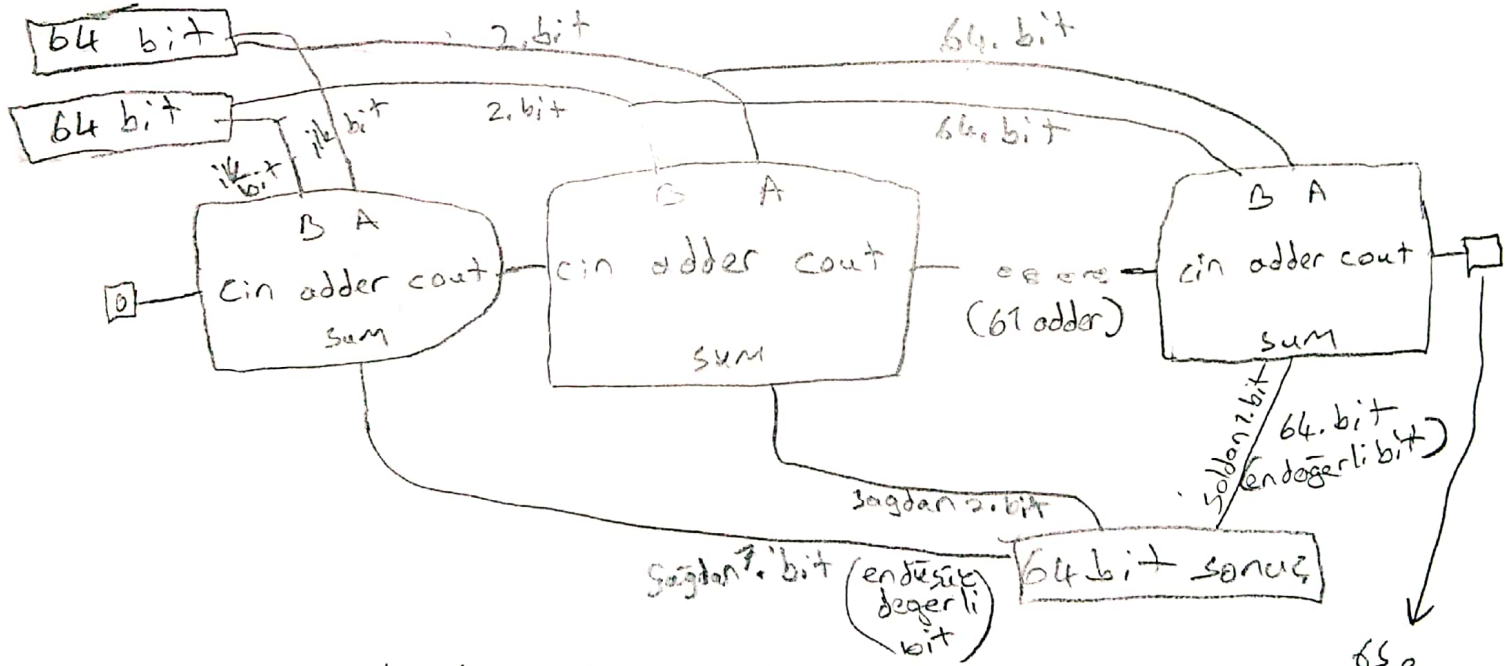 64 bit
2.bit
64. bit
64 bit
ilk bit
2. bit
64. bit
ilk bit
B A
cin adder cout
sum
0
B A
cin adder cout
sum
(61 adder)
B A
cin adder cout
sum
soldan 1.bit
64. bit
(en değerli bit)
sagdan 2. bit
Sağdan 1. bit
(en düşük
degerli
bit)
64 bit sonuç
65.